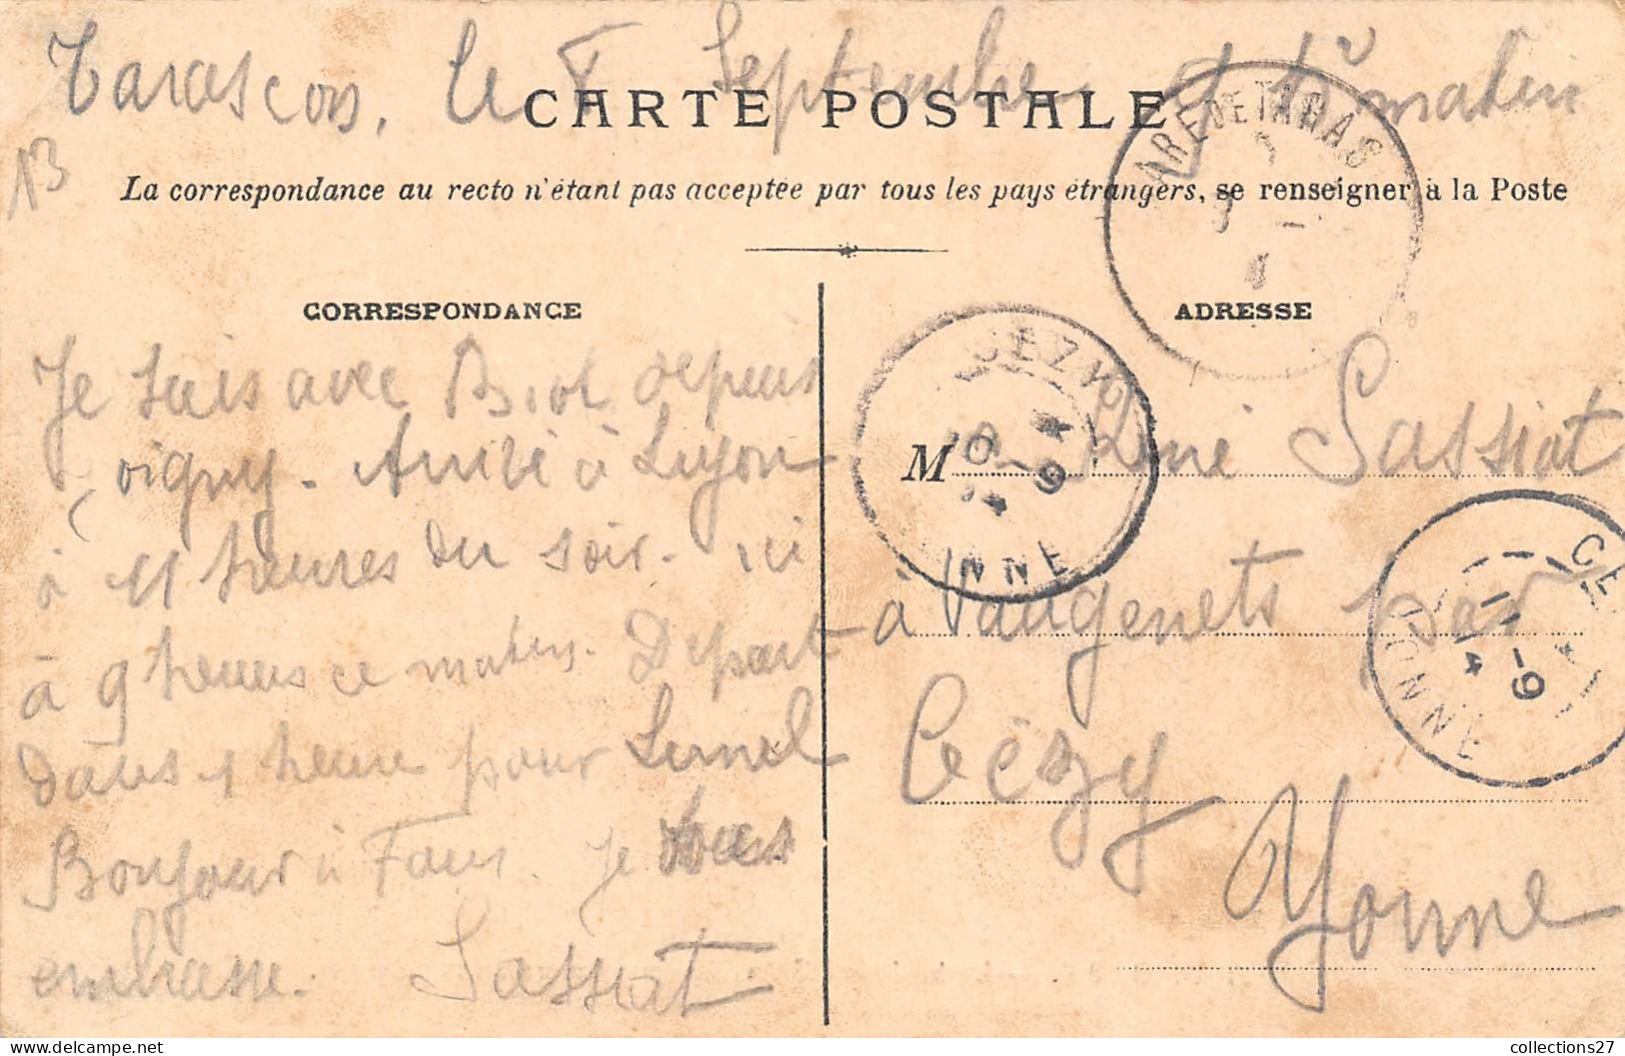 Tarascon, le Septembre matin
CARTE POSTALE
13
La correspondance au recto n'étant pas acceptée par tous les pays étrangers, se renseigner à la Poste
CORRESPONDANCE
Je suis avec Biot depuis
oigny. Arrivé à Lyon
à 11 heures du soir. ici
à 9 heures ce matin. Départ
dans 1 heure pour Lunel
Bonjour à Tous Je vous
embrasse. Sassiat
ADRESSE
M René Sassiat
à Vaugenets par
Cézy
Yonne
ARE DE TARAS
CÉZY
10 -9
NNE
CE
11 -9
YONNE
collections27